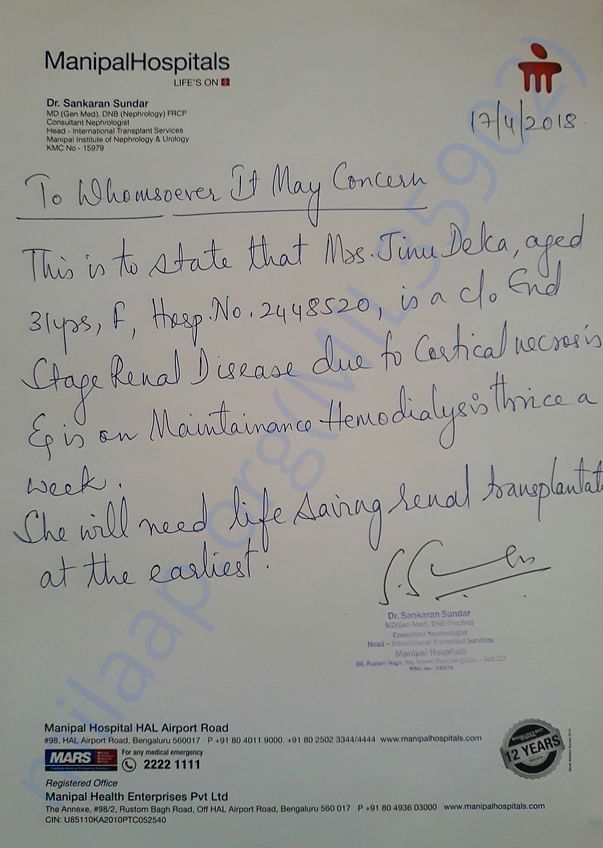 ManipalHospitals
LIFE'S ON
Dr. Sankaran Sundar
MD (Gen Med), DNB (Nephrology) FRCP
Consultant Nephrologist
Head - International Transplant Services
Manipal Institute of Nephrology & Urology
KMC No - 15979
17/4/2018
To Whomsoever It May Concern
This is to state that Mrs. Jinu Deka, aged
31yrs, F, Hosp. No. 2448520, is a c/o End
Stage Renal Disease due to Cortical necrosis
& is on Maintainance Hemodialysis thrice a
week.
She will need life saving renal transplantat
at the earliest.
Dr. Sankaran Sundar
MD(Gen Med), DNB (Nephro)
Consultant Nephrologist
Head - International Transplant Services
Manipal Hospitals
milaap.org(MIL35902)
Manipal Hospital HAL Airport Road
#98, HAL Airport Road, Bengaluru 560017 P +91 80 4011 9000, +91 80 2502 3344/4444 www.manipalhospitals.com
MARS
For any medical emergency
2222 1111
12 YEARS
Registered Office
Manipal Health Enterprises Pvt Ltd
The Annexe, #98/2, Rustom Bagh Road, Off HAL Airport Road, Bengaluru 560 017 P +91 80 4936 03000 www.manipalhospitals.com
CIN: U85110KA2010PTC052540